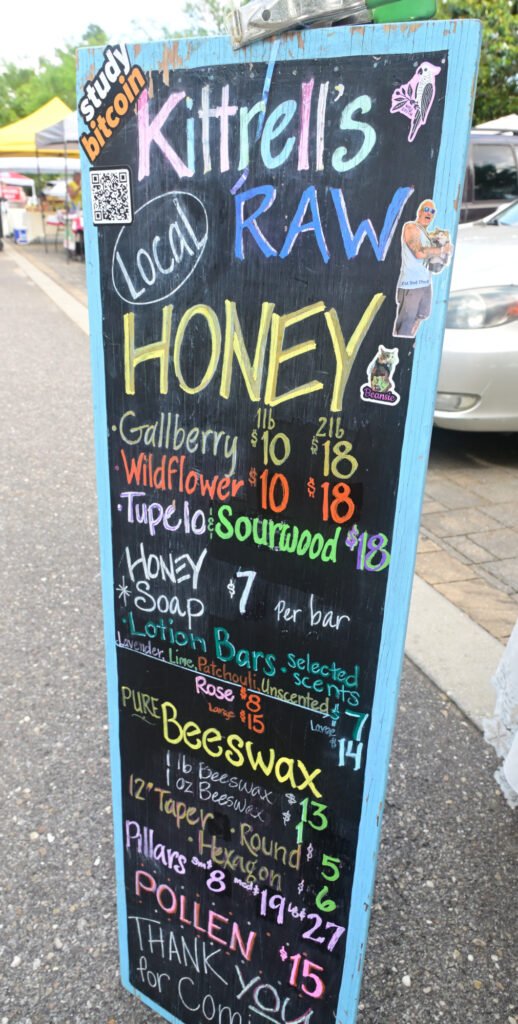 study
bitcoin
Kittrell's
Local
RAW
HONEY
1lb 2lb
·Gallberry $10 $18
·Wildflower $10 $18
·Tupelo & Sourwood $18
HONEY
*Soap $7 Per bar
·Lotion Bars·selected scents
Lavender, Lime, Patchouli, Unscented $7
Rose $8
Large $15
Large $14
PURE Beeswax
1 lb Beeswax $13
1 oz Beeswax $1
12" Taper · Round $5
·Hexagon $6
Pillars sm $8 med $19 $27
POLLEN $15
THANK YOU
for Comi
Beansie